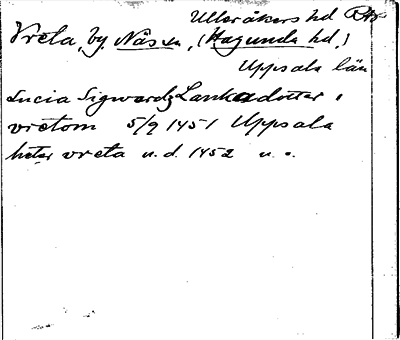 Ulleråkers hd
Vreta, by Näs sn, (Hagunda hd,)
Uppsala län
Lucia Sigwardz Lankadotter i
vretom 5/9 1451 Uppsala
heter vreta u. d. 1452 u. o.